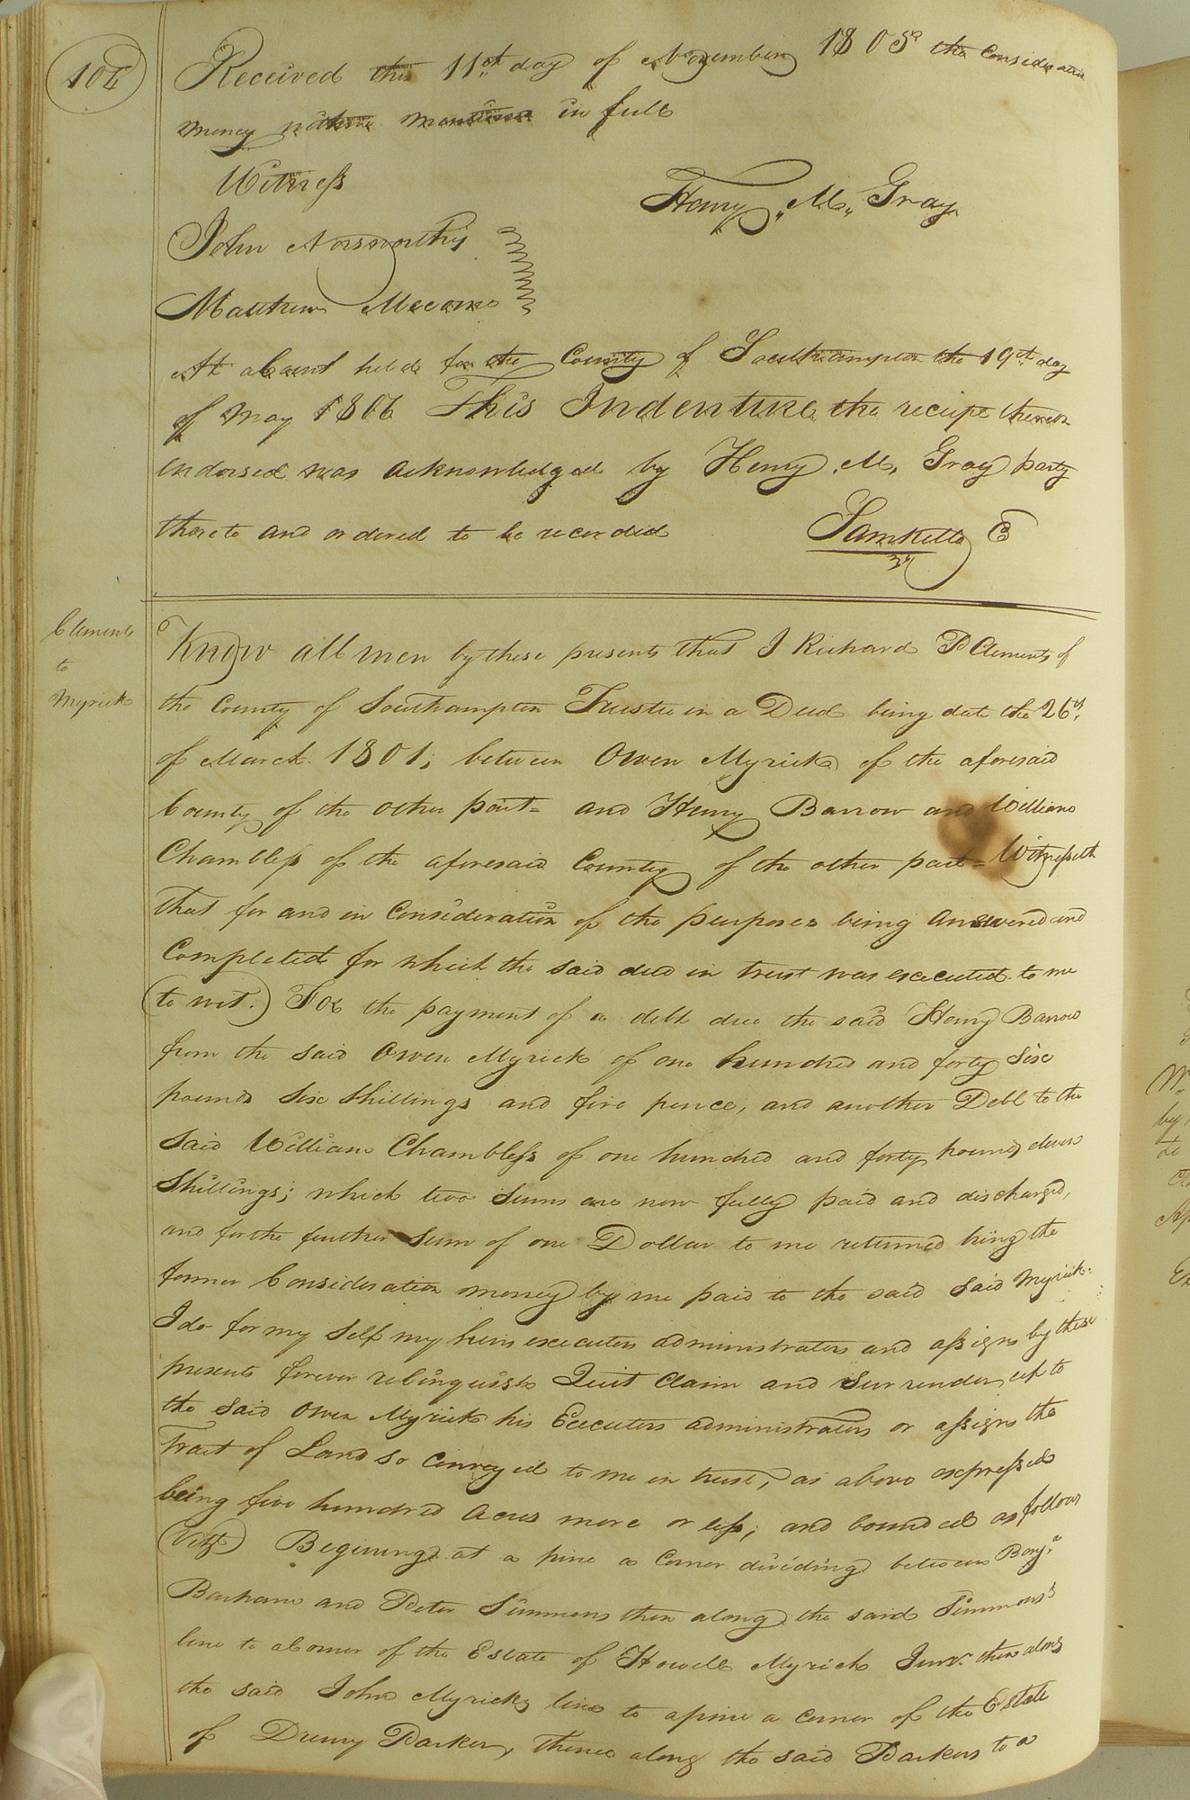 104
Received this 11th day of November 1805 the Consideration
money within mentioned in full
Witness
Henry M. Gray
John Norsworthy
Matthew Mecome
At a Court held for the County of Southampton the 19th day
of May 1806 This Indenture the reciept thereon
endorsed was acknowledged by Henry M. Gray party
thereto and ordered to be recorded
Sam Kello C
Clements
to
Myrick
Know all men by these presents that I Richard P Clements of
the County of Southampton Trustee in a Deed being date the 26th
of March 1801; between Owen Myrick of the aforesaid
County of the other part and Henry Barrow and William
Chambless of the aforesaid County of the other part = Witnesseth
that for and in Consideration of the purposes being answered and
Completed for which the said deed in trust was executed to me
(to wit.) For the payment of a debt due the said Henry Barrow
from the said Owen Myrick of one hundred and forty Six
pounds Six Shillings and five pence, and another Debt to the
said William Chambless of one hundred and forty pounds eleven
Shillings; which two Sums are now fully paid and discharged,
and for the further Sum of one Dollar to me returned being the
former Consideration money by me paid to the said Said Myrick.
I do for my self my heirs executors administrators and assigns by these
presents forever relinquish Quit Claim and Surrender up to
the said Owen Myrick his Executors administrators or assigns the
Tract of Land so conveyed to me in trust, as above expressed
being five hundred acres more or less; and bounded as follows
(Vizt) Begining at a pine a Corner dividing between Benja
Barham and Peter Simmons then along the said Simmons's
line to a Corner of the Estate of Howell Myrick Junr. then along
the said John Myricks line to a pine a corner of the Estate
of Drewry Parker, thence along the said Parkers to a